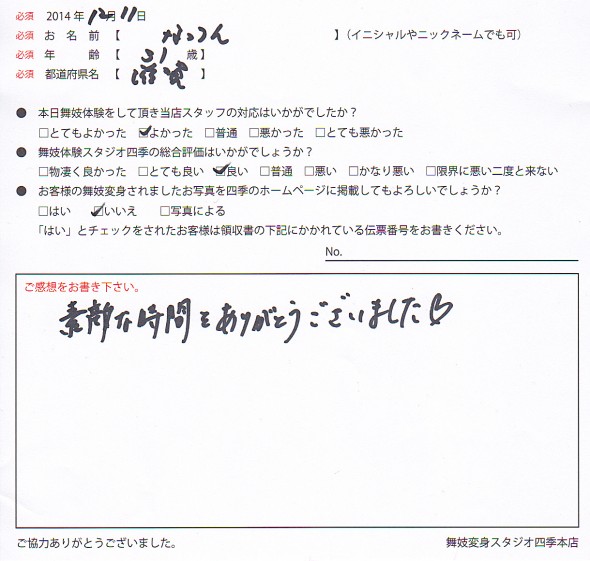 必須 2014年12月11日
必須 お名前【 なっつん 】（イニシャルやニックネームでも可）
必須 年齢【 31 歳】
必須 都道府県名【 滋賀 】
● 本日舞妓体験をして頂き当店スタッフの対応はいかがでしたか？
□とてもよかった ☑よかった □普通 □悪かった □とても悪かった
● 舞妓体験スタジオ四季の総合評価はいかがでしょうか？
□物凄く良かった □とても良い ☑良い □普通 □悪い □かなり悪い □限界に悪い二度と来ない
● お客様の舞妓変身されましたお写真を四季のホームページに掲載してもよろしいでしょうか？
□はい ☑いいえ □写真による
「はい」とチェックをされたお客様は領収書の下記にかかれている伝票番号をお書きください。
No.
ご感想をお書き下さい。
素敵な時間をありがとうございました♡
ご協力ありがとうございました。
舞妓変身スタジオ四季本店